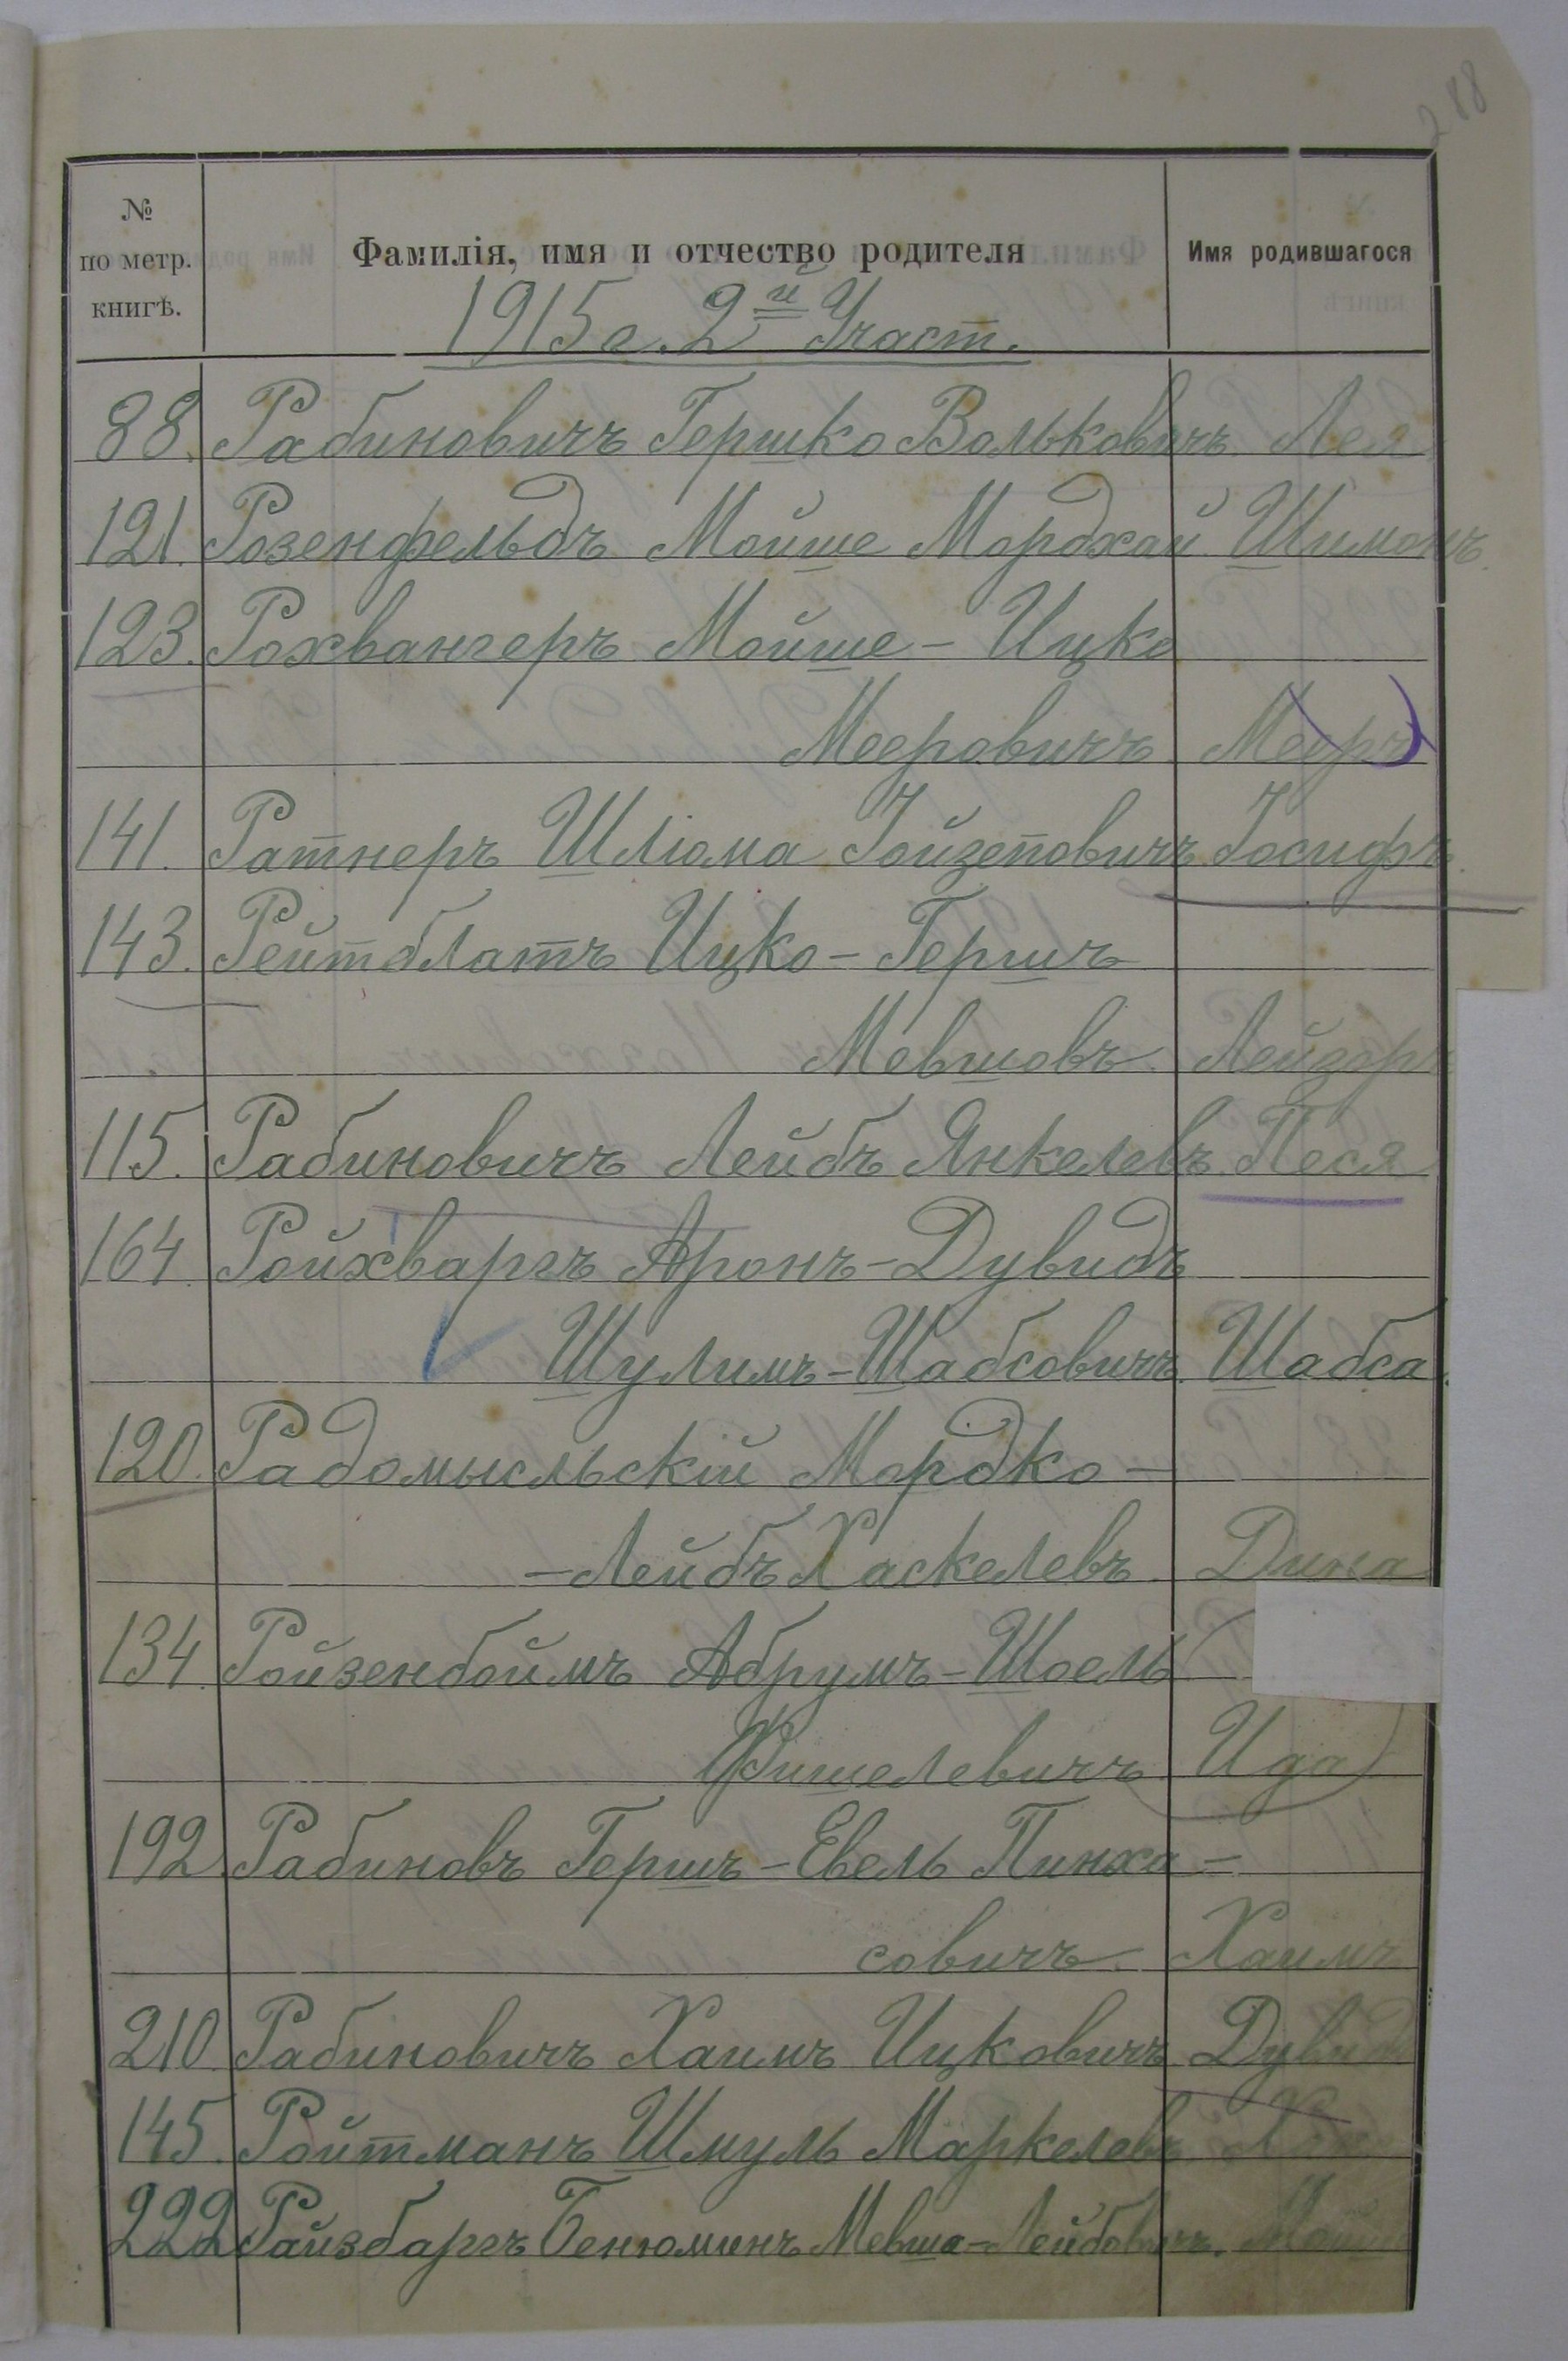 288
№
по метр.
книгѣ.
Фамилія, имя и отчество родителя
Имя родившагося
1915 г. 2й Участ.
88. Рабиновичъ Гершко Вольковичъ Лея
121. Розенфельдъ Мойше Мордхай Шимонъ.
123. Рохвангеръ Мойше - Ицко
Мееровичъ Мееръ
141. Ратнеръ Шліома Іойзеповичъ Іосифъ.
143. Рейтблатъ Ицко - Гершъ
Мевшовъ. Лейзоръ
115. Рабиновичъ Лейбъ Янкелевъ Песя
164 Ройхваргъ Аронъ - Дувидъ
Шулимъ - Шабсовичъ. Шабса.
120. Радомысльскій Мордко -
- Лейбъ Хаскелевъ. Дина
134. Ройзенбоймъ Абрумъ - Шоель
Фишелевичъ. Ида
192. Рабиновъ Гершъ - Евель Пинха -
совичъ. Хаимъ
210. Рабиновичъ Хаимъ Ицковичъ Дувидъ
145. Ройтманъ Шмуль Маркелевъ
222 Райзбаргъ Бенюминъ Мевша - Лейбовичъ.